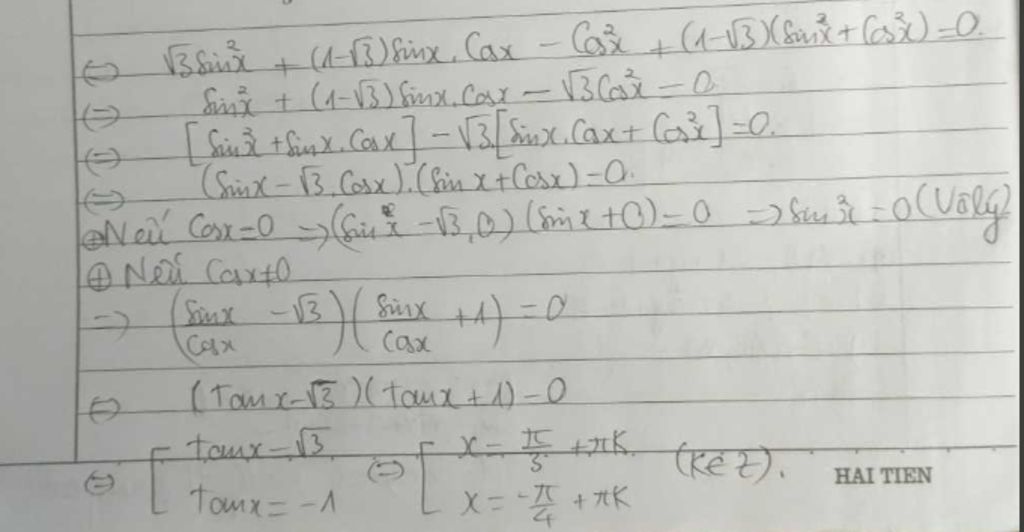 ⇔ √3 sin²x + (1-√3) sinx. Cosx - Cos²x + (1-√3)(sin²x + Cos²x) = 0.
⇔ sin²x + (1-√3) sinx. Cosx - √3 Cos²x = 0.
⇔ [sin²x + sinx. Cosx] - √3.[sinx. Cosx + Cos²x] = 0.
⇔ (sinx - √3. Cosx).(sinx + Cosx) = 0.
⊕ Nếu Cosx = 0 => (sin x - √3.0)(sinx + 0) = 0 => sin²x = 0 (Vô lý)
⊕ Nếu Cosx ≠ 0
=> (sinx/Cosx - √3)(sinx/Cosx + 1) = 0
⇔ (tanx - √3)(tanx + 1) = 0
⇔ [ tanx = √3 ⇔ [ x = π/3 + πK (K ∈ Z).
tanx = -1 x = -π/4 + πK
HAI TIEN